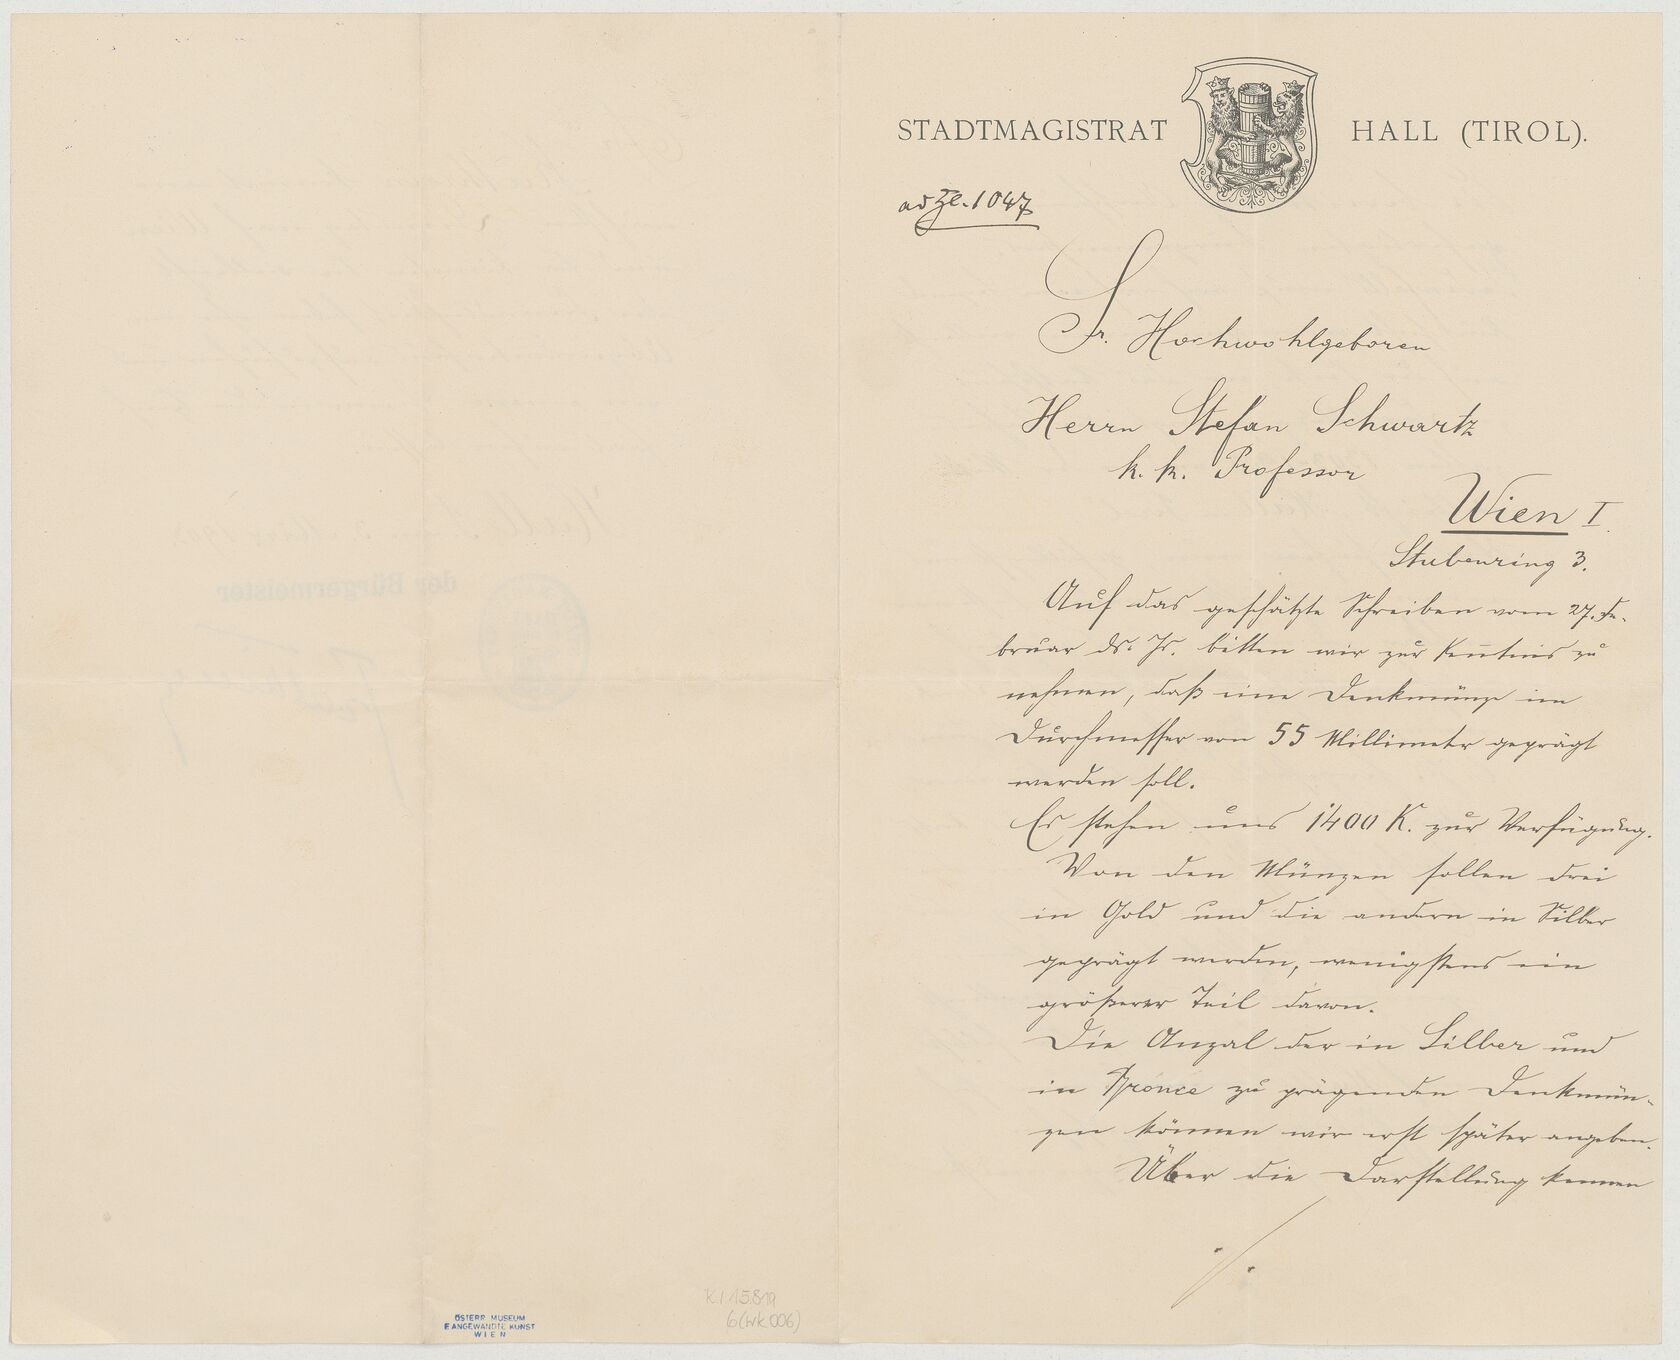 STADTMAGISTRAT HALL (TIROL).
ad Zl. 1047
Sr. Hochwohlgeboren
Herrn Stefan Schwartz
k. k. Professor
Wien I.
Stubenring 3.
Auf das geschätzte Schreiben vom 27. Fe-
bruar ds. Js. bitten wir zur Kenntnis zu
nehmen, daß eine Denkmünze im
Durchmesser von 55 Millimeter geprägt
werden soll.
Es stehen uns 1400 K. zur Verfügung.
Von den Münzen sollen drei
in Gold und die andern in Silber
geprägt werden, wenigstens ein
größerer Teil davon.
Die Anzal der in Silber und
in Bronce zu prägenden Denkmün-
zen können wir erst später angeben.
Über die Darstellung kennen
./.
der Bürgermeister
K.I. 15.819
6 (wk 006)
ÖSTERR. MUSEUM
F. ANGEWANDTE KUNST
WIEN